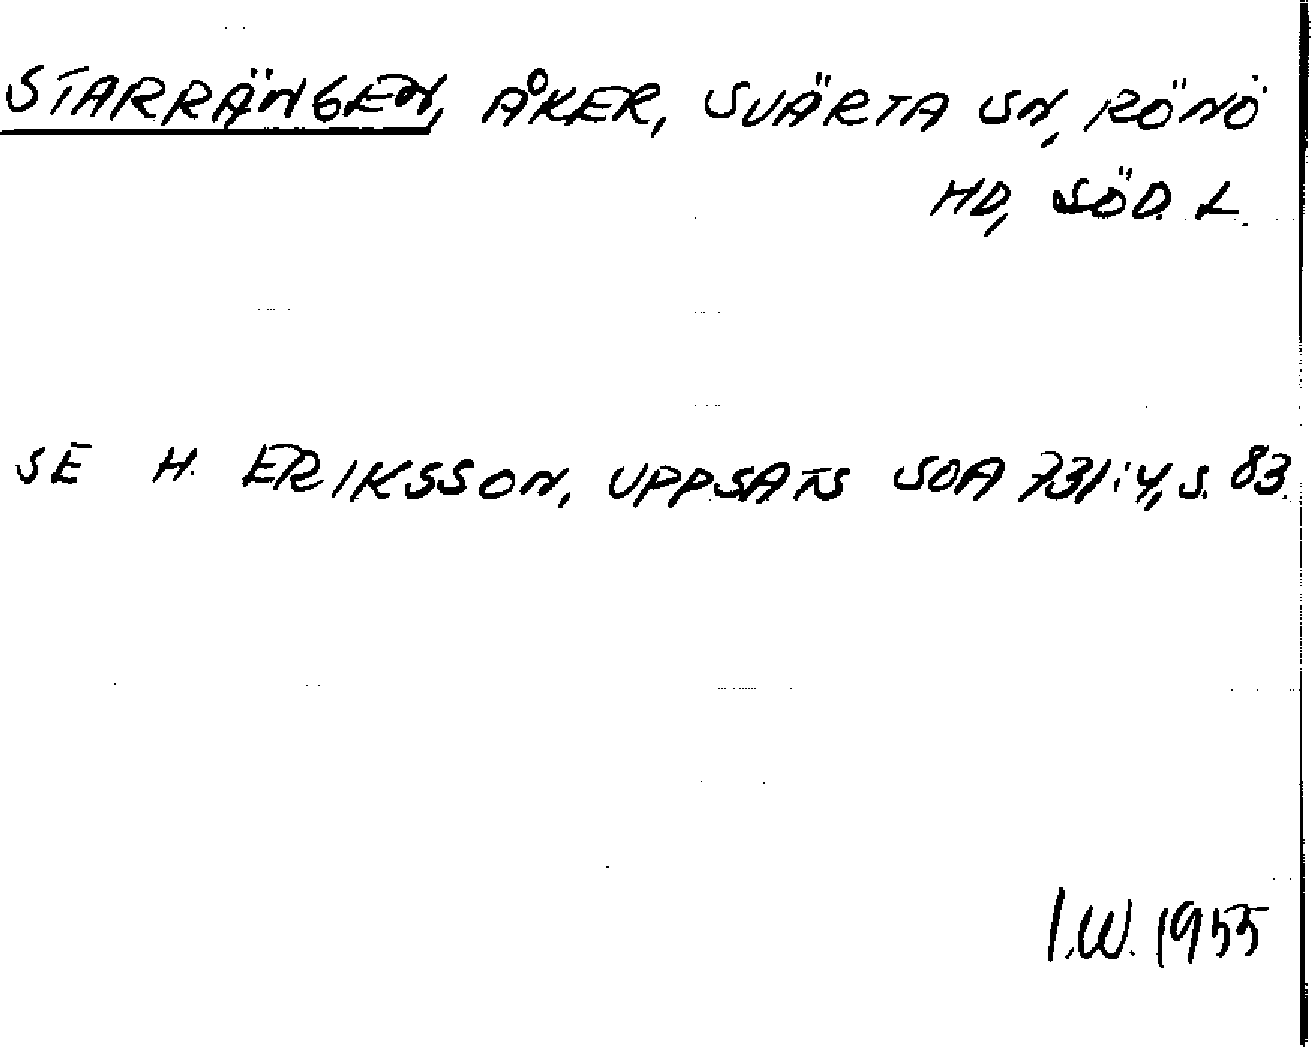 STARRÄNGEN, ÅKER, SVÄRTA SN, RÖNÖ
HD, SÖD. L.
SE H. ERIKSSON, UPPSATS SOA 731:4, S. 83.
I.W. 1955